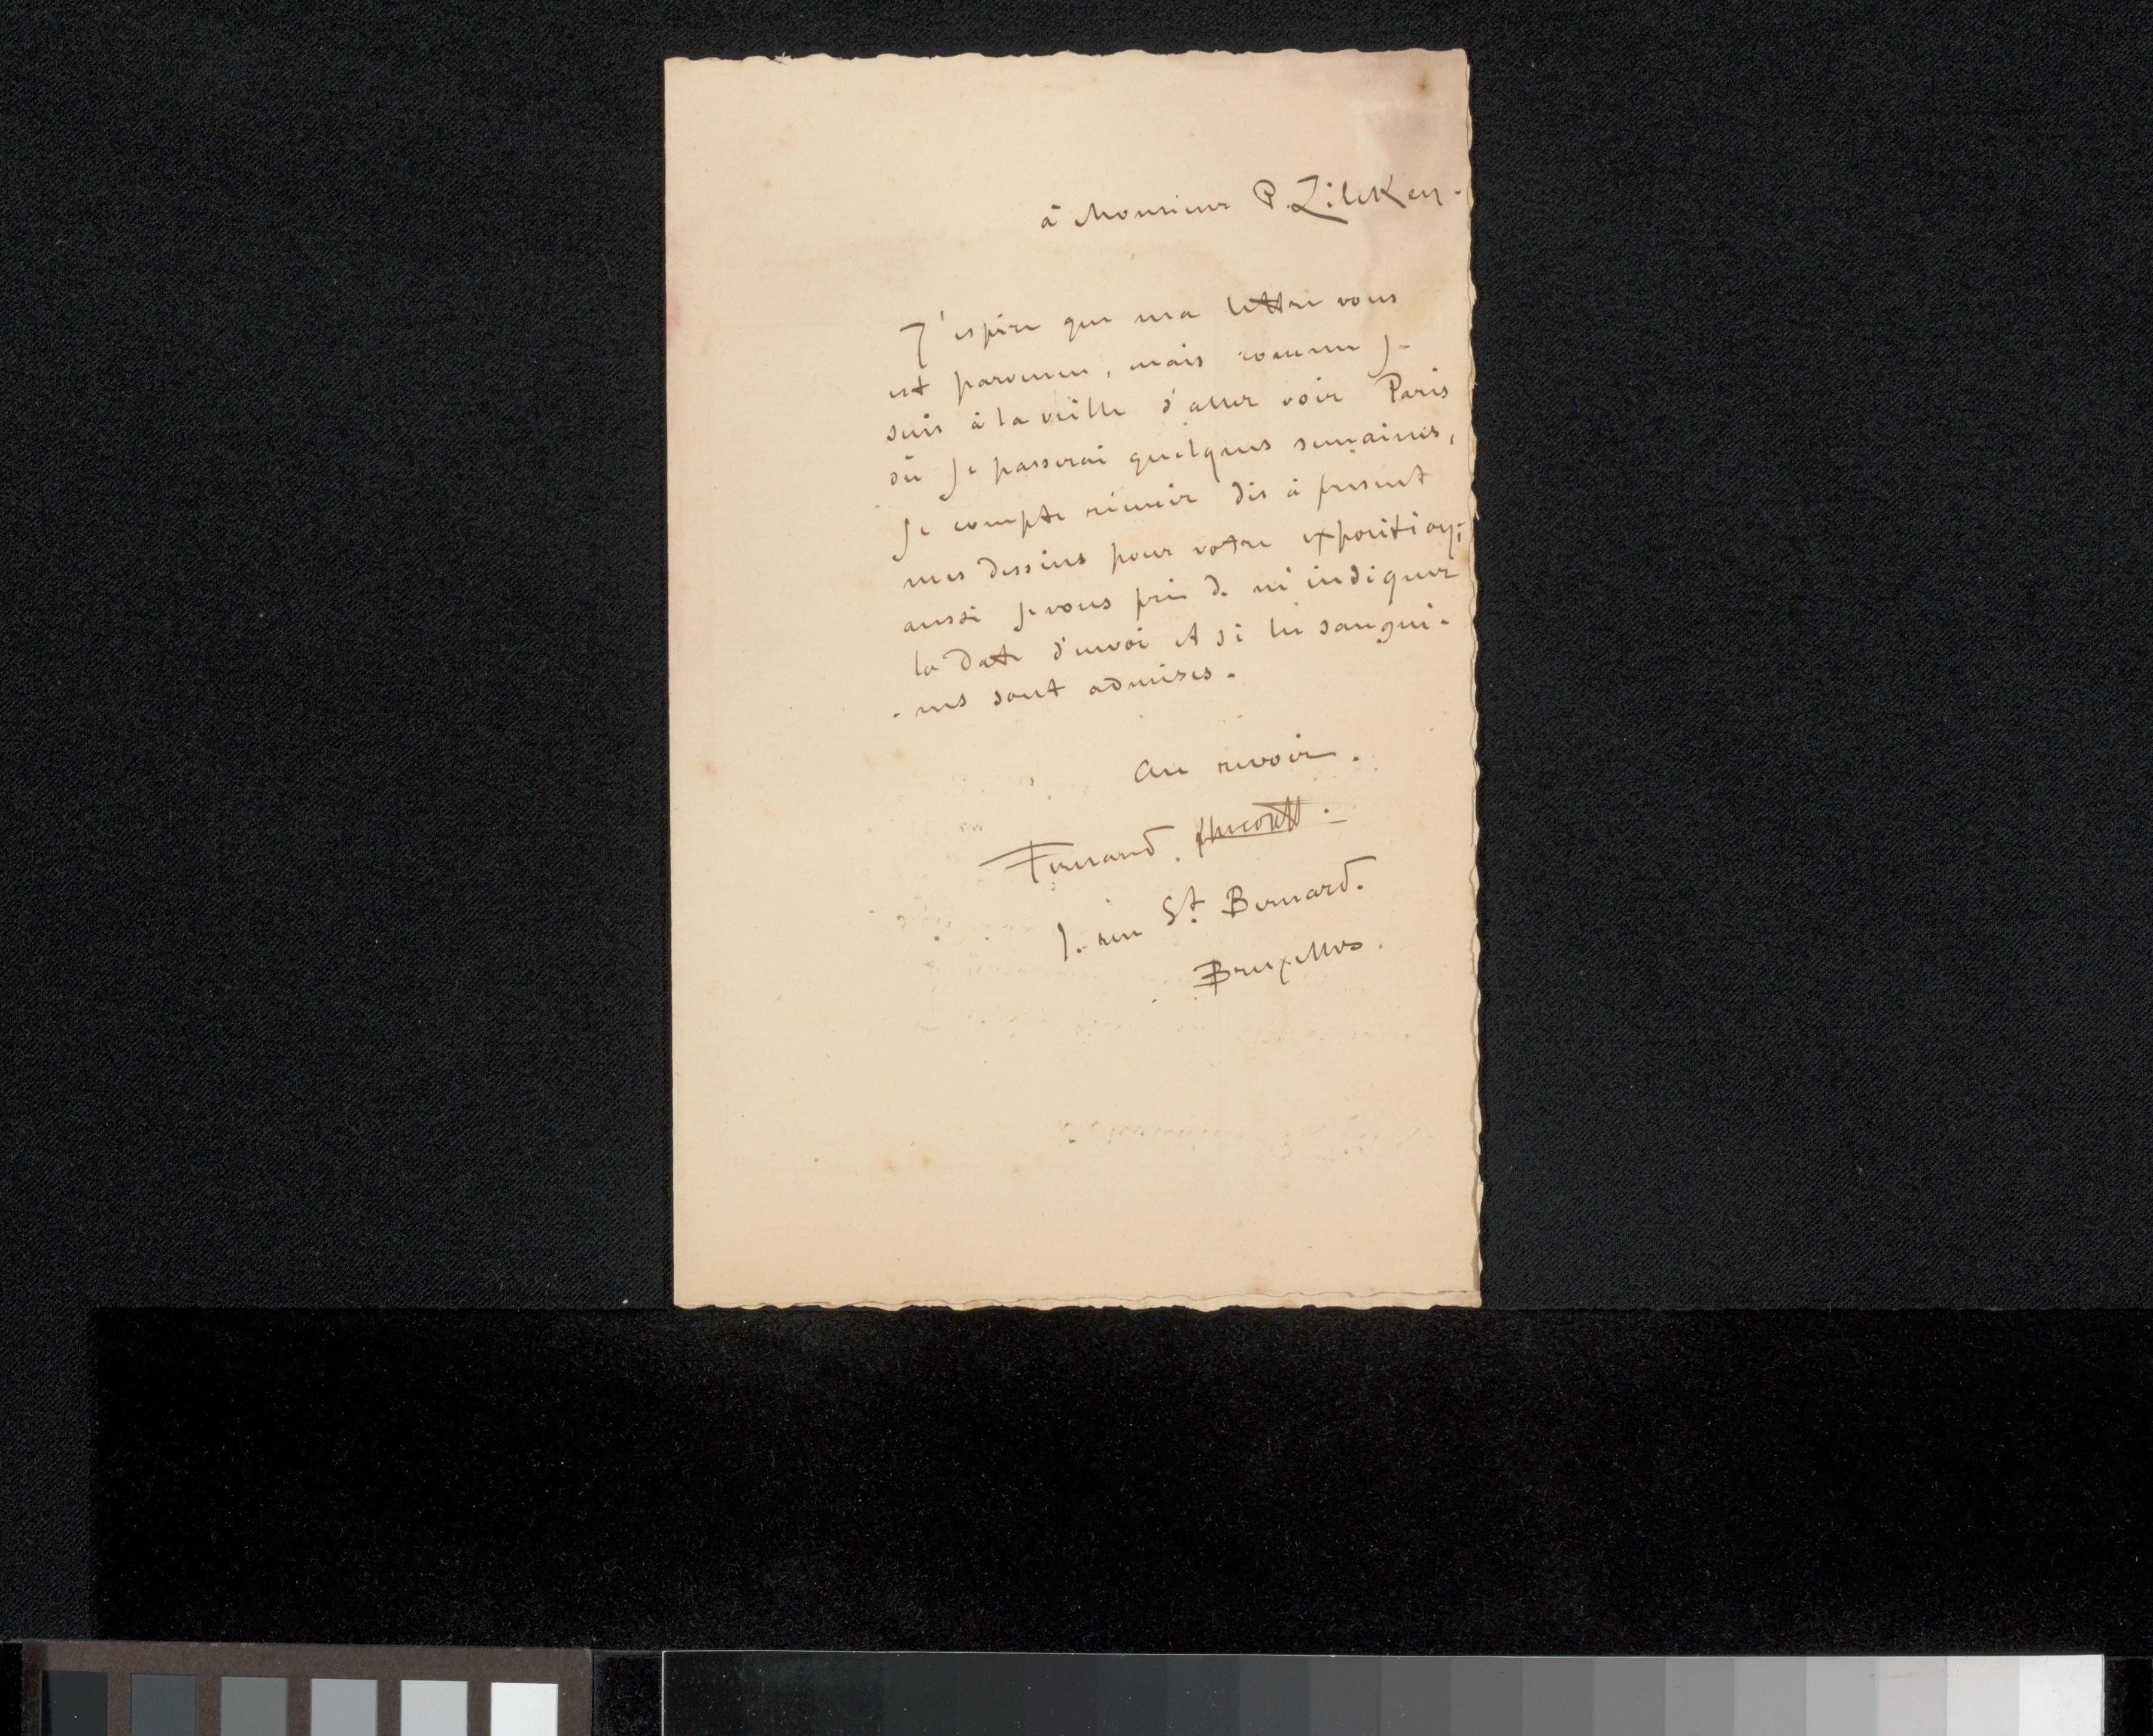 à Monsieur P. Zilcken.
J'espère que ma lettre vous
est parvenue, mais comme je
suis à la veille d'aller voir Paris
où je passerai quelques semaines,
je compte réunir dès à présent
mes dessins pour votre exposition;
aussi je vous prie de m'indiquer
la date d'envoi et si les sangui-
-nes sont admises.
Au revoir.
Fernand Khnopff.
1. rue St. Bernard.
Bruxelles.